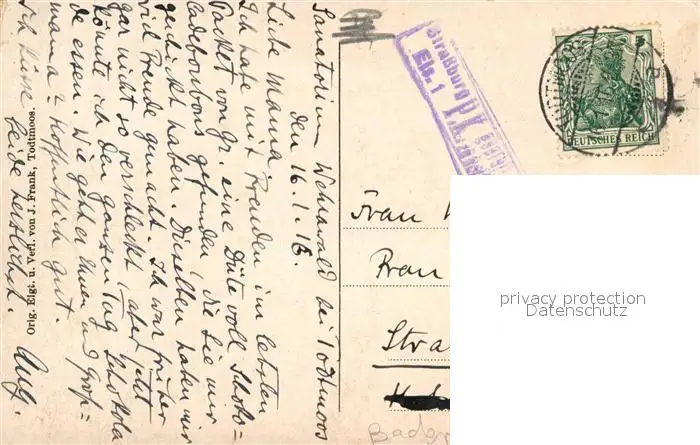 Sanatorium Wehrawald bei Todtmoos
den 16.1.16.
Liebe Mama.
Ich habe mit Freuden im letzten
Packet von Gr. eine Düte voll Schoko-
ladebonbons gefunden, die Sie mir
geschickt haben. Dieselben haben mir
viel Freude gemacht. Ich war früher
gar nicht so verschleckt, aber jetzt
könnte ich den ganzen Tag Schokola
de essen. Wie geht es Ihnen und Groß=
mama? Hoffentlich gut.
Ich küsse Beide herzlichst. Aug.
Orig. Eigt. u. Verl. von J. Frank, Todtmoos.
Straßburg
Els. 1
DEUTSCHES REICH
5
Frau
Stra
Bad
privacy protection
Datenschutz